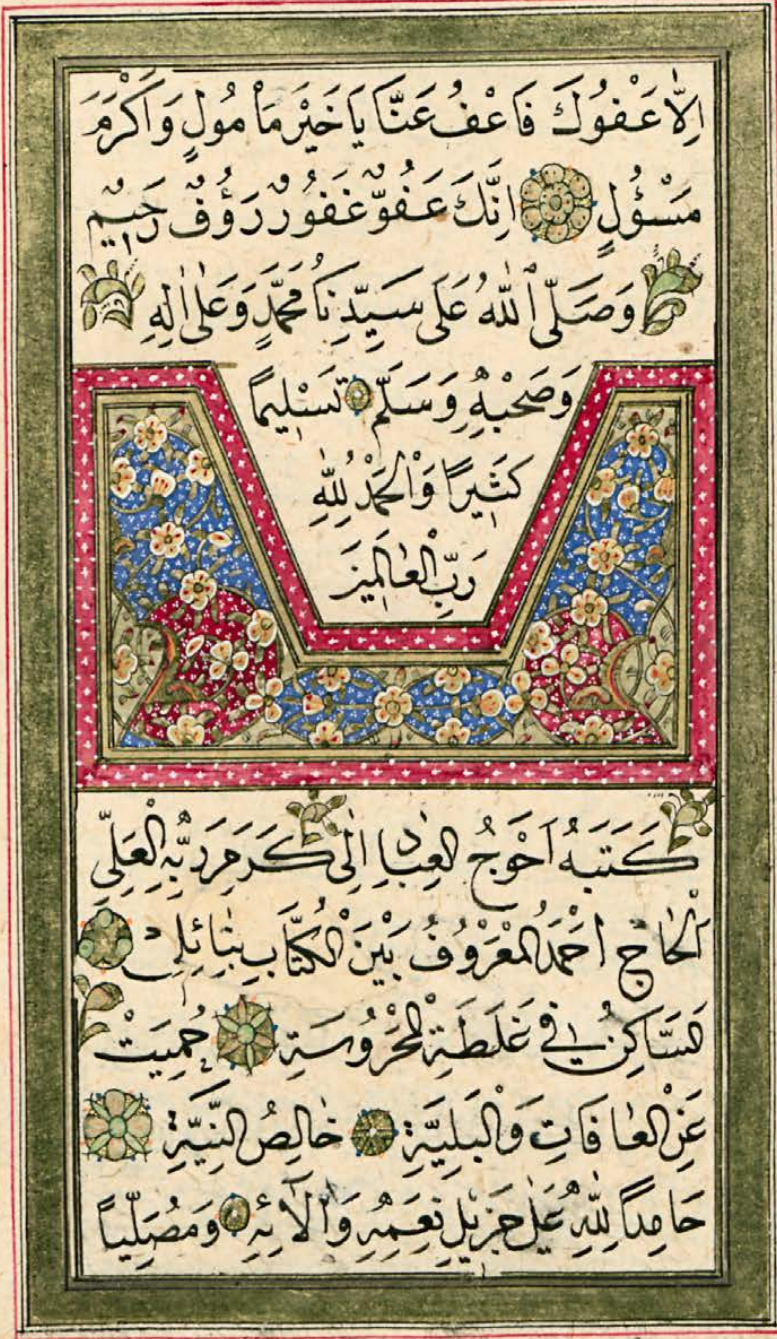 اِلَّا عَفْوُكَ فَاعْفُ عَنَّا يَا خَيْرَ مَأْمُولٍ وَاَكْرَمَ
مَسْؤُلٍ اِنَّكَ عَفُوٌّ غَفُورٌ رَؤُفٌ رَحِيمٌ
وَصَلَّى اللّٰهُ عَلٰى سَيِّدِنَا مُحَمَّدٍ وَعَلٰى اٰلِهِ
وَصَحْبِهِ وَسَلَّمَ تَسْلِيمًا
كَثِيرًا وَالْحَمْدُ لِلّٰهِ
رَبِّ الْعَالَمِينَ
كَتَبَهُ اَحْوَجُ الْعِبَادِ اِلٰى كَرَمِ رَبِّهِ الْعَلِيِّ
اَلْحَاج اَحْمَدُ الْمَعْرُوفُ بَيْنَ الْكُتَّابِ بِنَائِلِى
السَّاكِنُ فِى غَلَطَةِ الْمَحْرُوسَةِ حُمِيَتْ
عَنِ الْعَافَاتِ وَالْبَلِيَّةِ خَالِصُ النِّيَّةِ
حَامِدًا لِلّٰهِ عَلٰى جَزِيلِ نِعَمِهِ وَاٰلَائِهِ وَمُصَلِّيًا